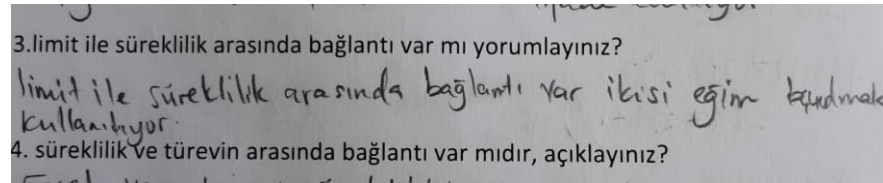 3.limit ile süreklilik arasında bağlantı var mı yorumlayınız?
limit ile süreklilik arasında bağlantı var ikisi eğim
kullanılıyor.
4. süreklilik ve türevin arasında bağlantı var mıdır, açıklayınız?